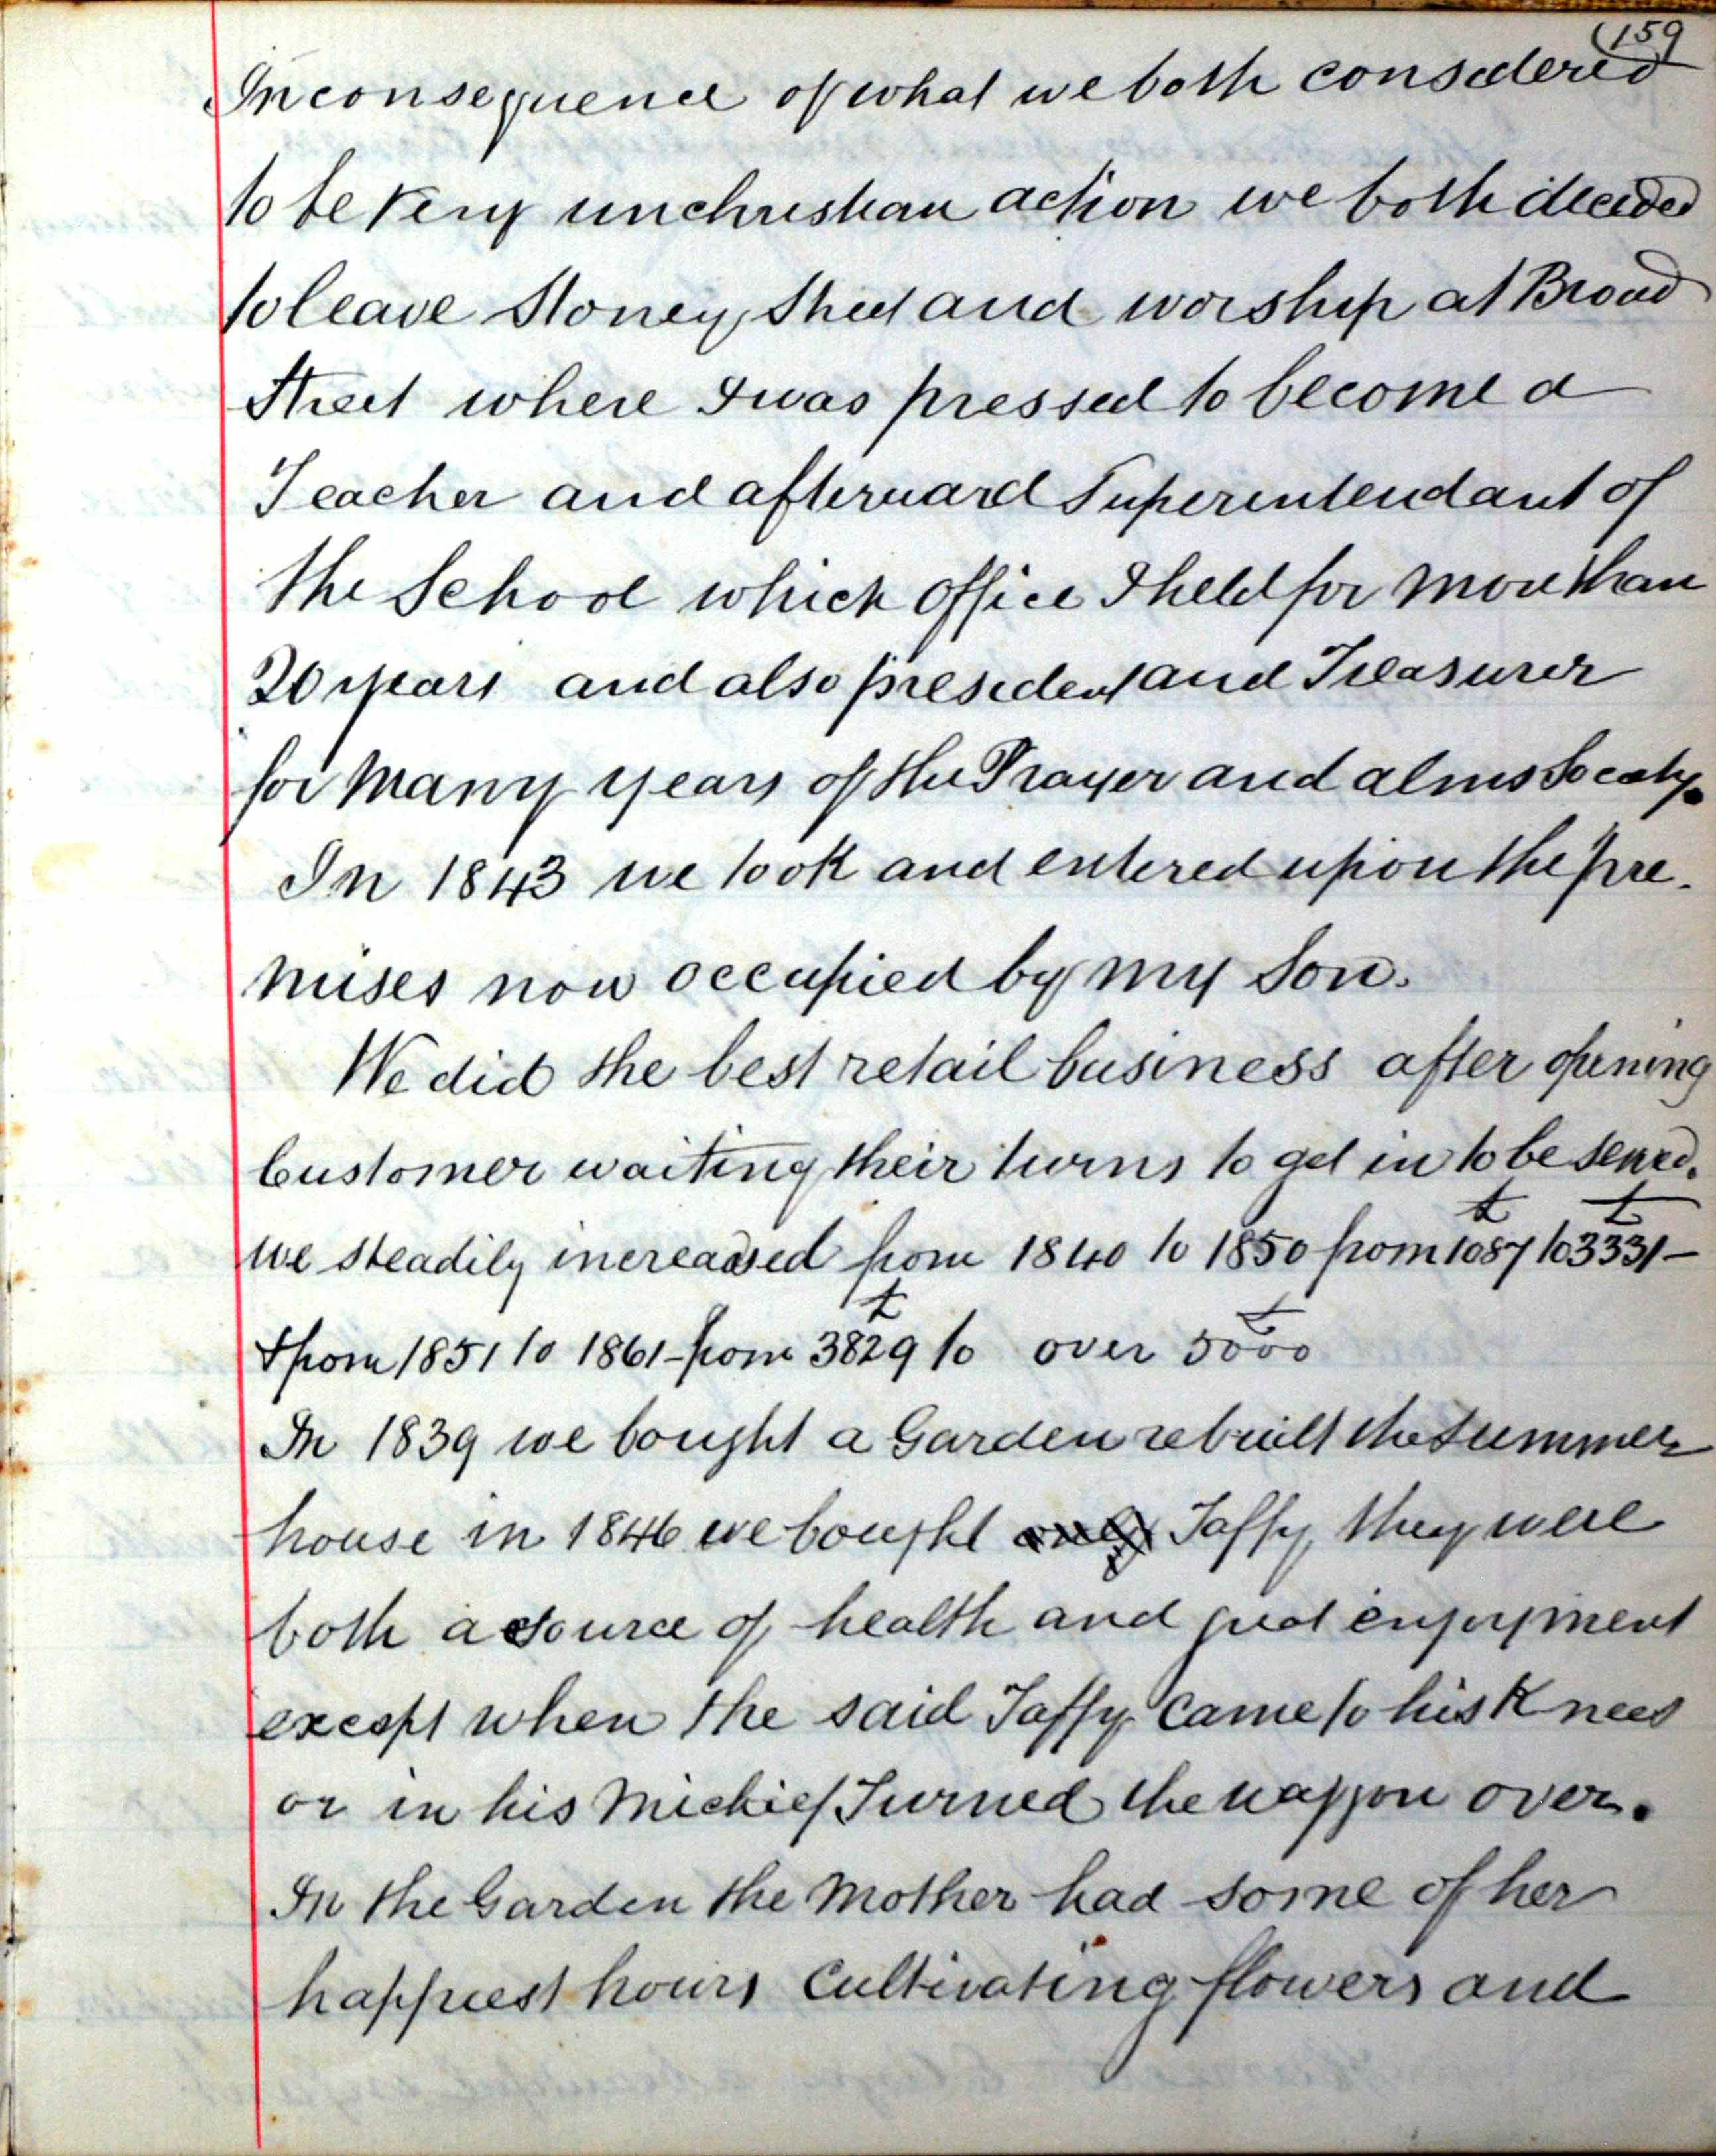 (159
In consequence of what we both considered
to be very unchristian action we both decided
to leave Stoney Street and worship at Broad
Street where I was pressed to become a
Teacher and afterward Superintendant of
the School which office I held for more than
20 years and also president and Treasurer
for many years of the Prayer and alms Society.
In 1843 we took and entered upon the pre-
mises now occupied by my Son.
We did the best retail business after opening
Customer waiting their turns to get in to be served.
we steadily increased from 1840 to 1850 from £1087 to £3331-
& from 1851 to 1861 - from £3829 to over £5000
In 1839 we bought a Garden rebuilt the Summer
house in 1846 we bought Taffy, they were
both a source of health and great enjoyment
except when the said Taffy came to his Knees
or in his Michief Turned the waggon over.
In the Garden the Mother had some of her
happiest hours Cultivating flowers and